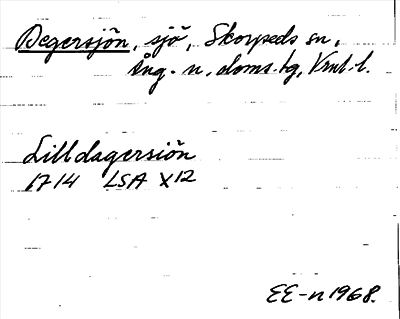 Degersjön, sjö, Skorpeds sn,
Ång. n. doms.hg, Vrnl. l.
Lilldagersiön
1714 LSA X12
EE-n 1968.